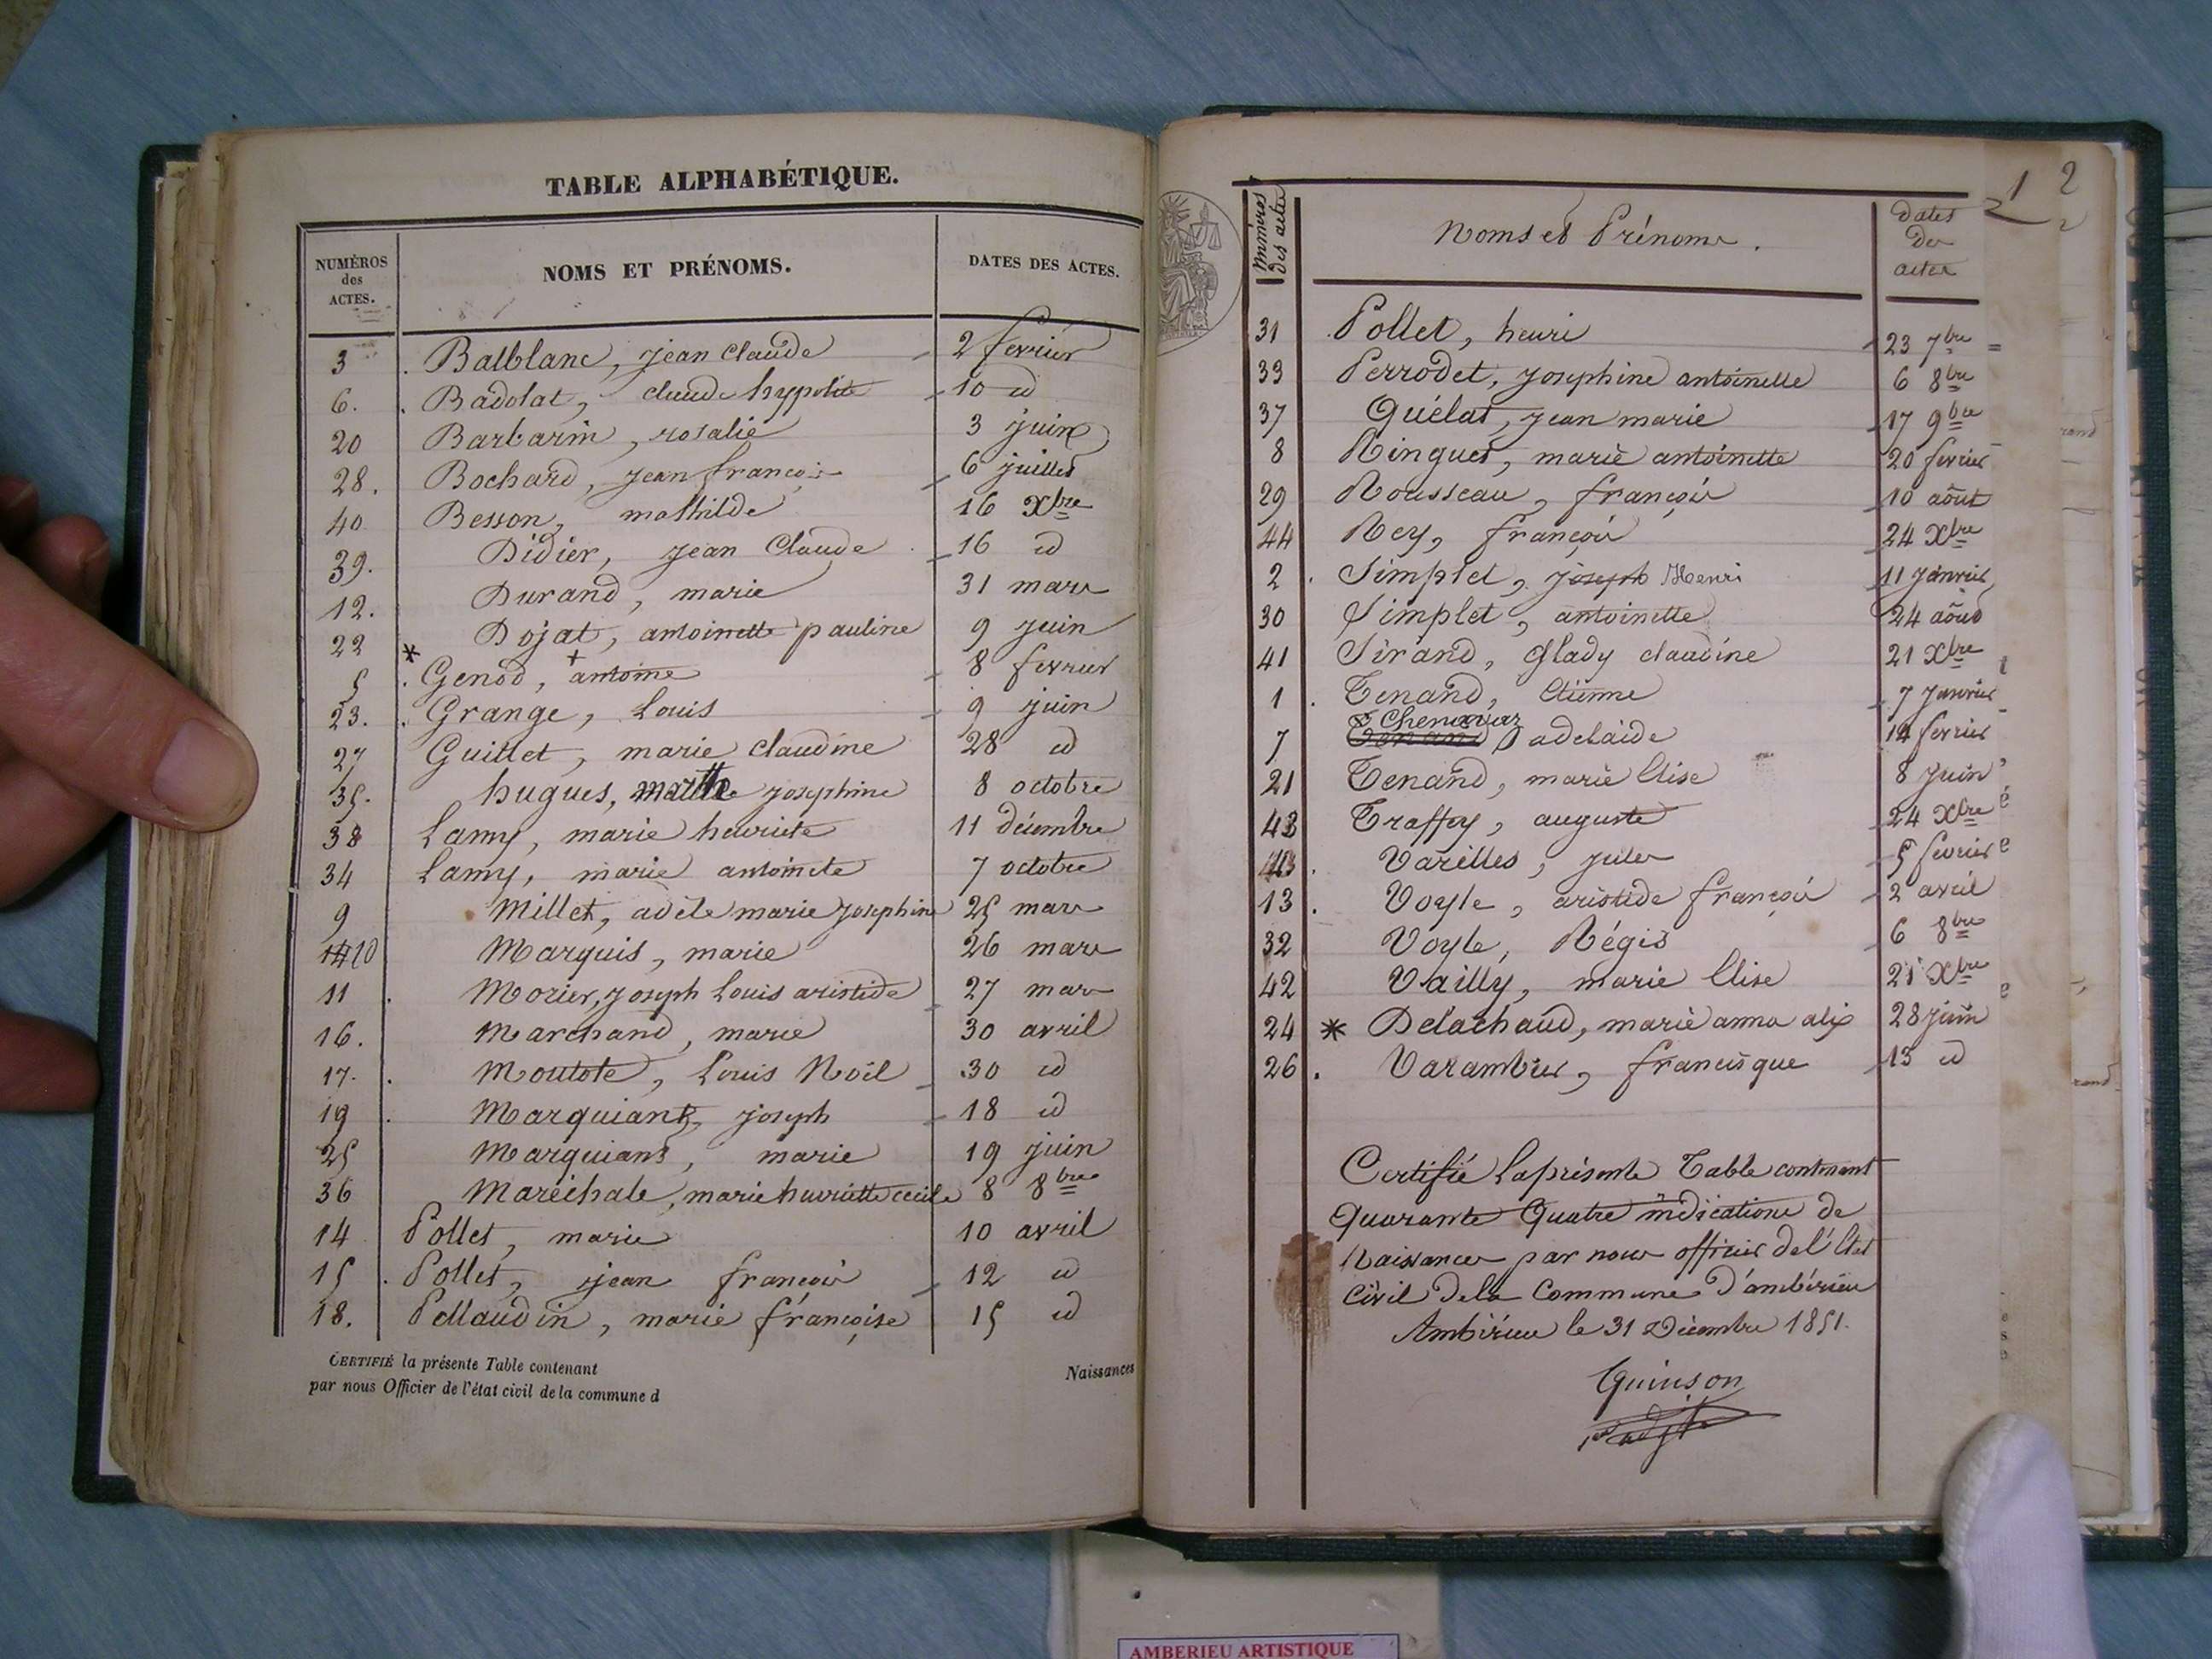 TABLE ALPHABÉTIQUE.
NUMÉROS des ACTES.
NOMS ET PRÉNOMS.
DATES DES ACTES.
3 . Balblanc, jean claude 2 fevrier
6. . Badolat, claude hypolite 10 id
20 Barbarin, rosalie 3 juin
28. Bochard, jean françois 6 juillet
40 Besson, mathilde 16 Xbre
39. Didier, jean Claude 16 id
12. Durand, marie 31 mars
22 Dojat, antoinette pauline 9 juin
* 5 . Genod, antoine 8 fevrier
23. . Grange, Louis 9 juin
27 Guillet, marie claudine 28 id
35. hugues, marthe josephine 8 octobre
38 Lamy, marie henriete 11 décembre
34 Lamy, marie antoinete 7 octobre
9 Millet, adèle marie josephine 25 mars
10 Marquis, marie 26 mars
11 . Morier, joseph Louis aristide 27 mars
16. Marchand, marie 30 avril
17. . Moutote, Louis Noël 30 id
19 . Marquiant, joseph 18 id
25 Marquiant, marie 19 juin
36 Maréchale, marie henriette cecile 8 8bre
14 Pollet, marie 10 avril
15 . Pollet, jean françois 12 id
18. Pellaudin, marie françoise 15 id
CERTIFIÉ la présente Table contenant
Naissances
par nous Officier de l'état civil de la commune d
1 2
2
Numéros des actes
Noms et Prénoms.
Dates des actes
31 . Pollet, henri 23 7bre
33 Perrodet, josephine antoinette 6 8bre
37 Quélat, jean marie 17 9bre
8 Ringuet, marie antoinette 20 fevrier
29 Rousseau, françois 10 août
44 Rey, françois 24 Xbre
2 . Simplet, joseph Henri 11 janvier
30 Simplet, antoinette 24 août
41 Sirand, Glady claudine 21 Xbre
1 . Tenand, Etienne 7 janvier
Chenavaz
7 Tenand adelaide 14 fevrier
21 Tenand, marie Elise 8 juin
43 Traffey, auguste 24 Xbre
. Varilles, jules 5 fevrier
13 . Voyle, aristide françois 2 avril
32 Voyle, Régis 6 8bre
42 Vailly, marie Elise 21 Xbre
24 * Delachaud, marie anna alix 28 juin
26 . Varambier, francisque 13 id
Certifié la présente Table contenant
Quarante Quatre indications de
Naissances par nous officier de l'Etat
civil de la Commune d'ambérieu
Ambérieu le 31 Décembre 1851.
Quinson
AMBERIEU ARTISTIQUE